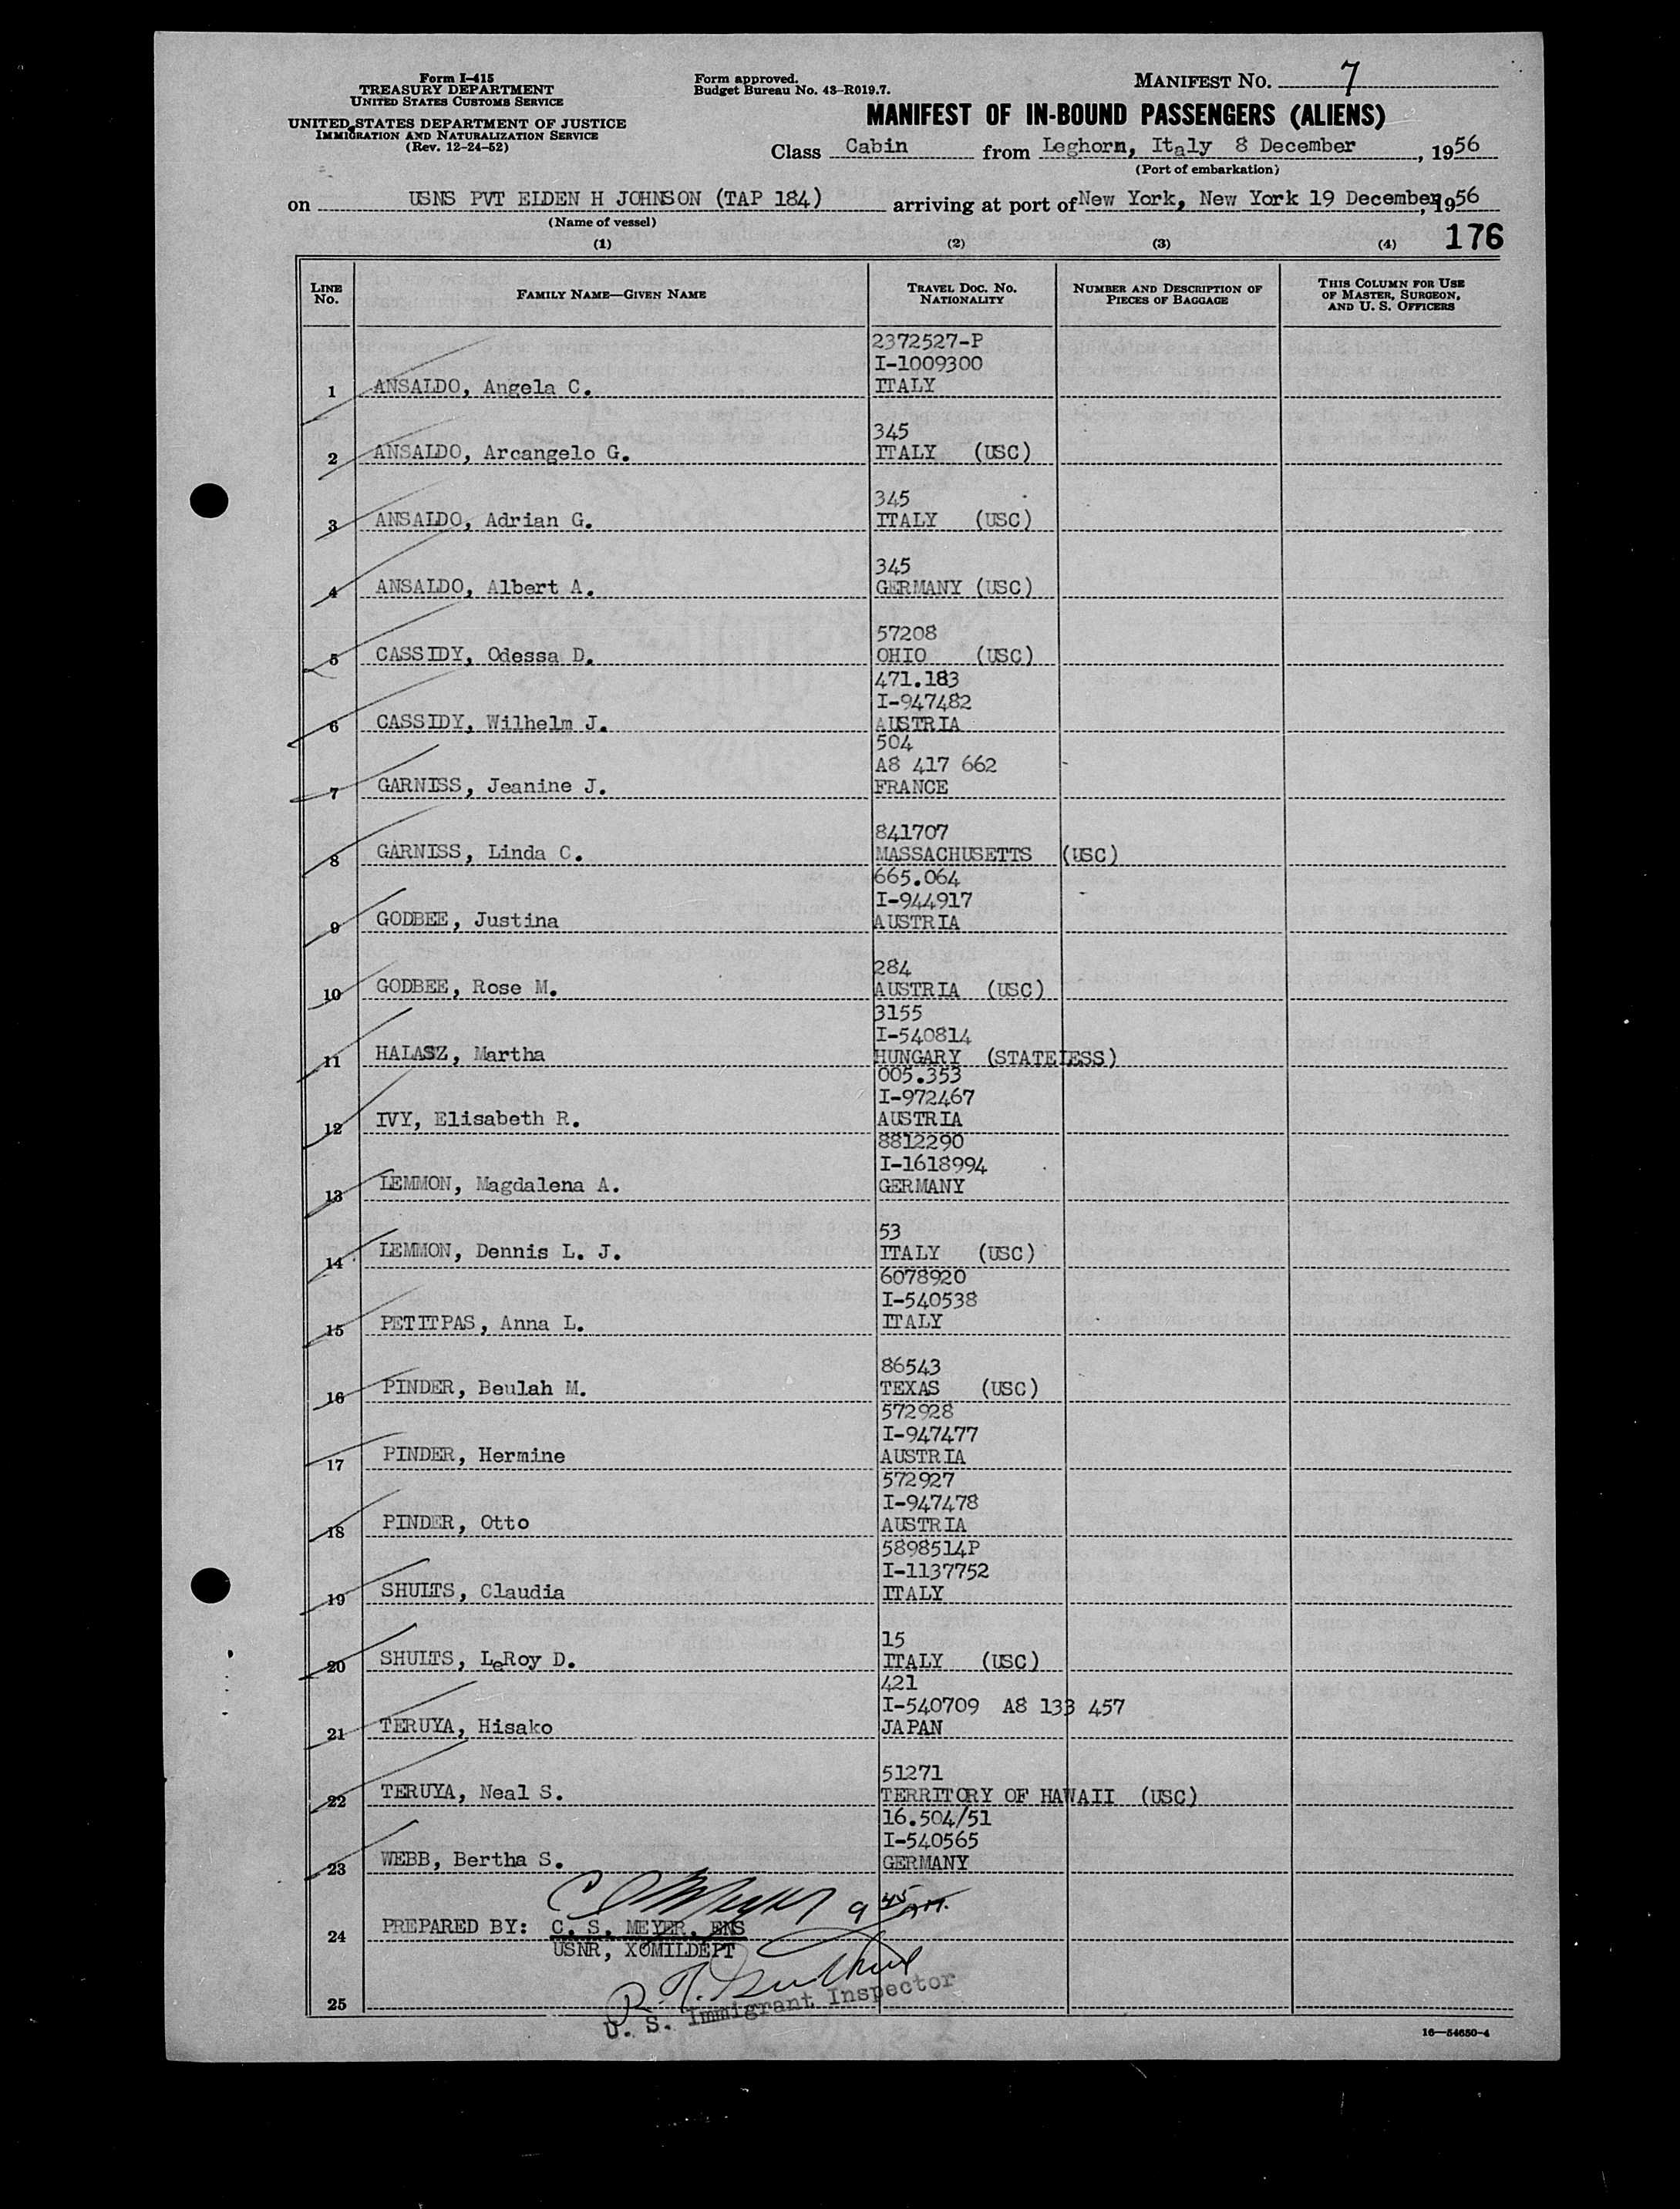 Form I-415
TREASURY DEPARTMENT
UNITED STATES CUSTOMS SERVICE
UNITED STATES DEPARTMENT OF JUSTICE
IMMIGRATION AND NATURALIZATION SERVICE
(Rev. 12-24-52)
Form approved.
Budget Bureau No. 43-R019.7.
MANIFEST NO. 7
MANIFEST OF IN-BOUND PASSENGERS (ALIENS)
Class Cabin from Leghorn, Italy 8 December, 1956
(Port of embarkation)
on USNS PVT ELDEN H JOHNSON (TAP 184) arriving at port of New York, New York 19 December, 1956
(Name of vessel)
(1) (2) (3) (4) 176
LINE No. FAMILY NAME—GIVEN NAME TRAVEL DOC. NO. NATIONALITY NUMBER AND DESCRIPTION OF PIECES OF BAGGAGE THIS COLUMN FOR USE OF MASTER, SURGEON, AND U. S. OFFICERS
2372527-P
I-1009300
1 ANSALDO, Angela C. ITALY
345
2 ANSALDO, Arcangelo G. ITALY (USC)
345
3 ANSALDO, Adrian G. ITALY (USC)
345
4 ANSALDO, Albert A. GERMANY (USC)
57208
5 CASSIDY, Odessa D. OHIO (USC)
471.183
I-947482
6 CASSIDY, Wilhelm J. AUSTRIA
504
A8 417 662
7 GARNISS, Jeanine J. FRANCE
841707
8 GARNISS, Linda C. MASSACHUSETTS (USC)
665.064
I-944917
9 GODBEE, Justina AUSTRIA
284
10 GODBEE, Rose M. AUSTRIA (USC)
3155
I-540814
11 HALASZ, Martha HUNGARY (STATELESS)
005.353
I-972467
12 IVY, Elisabeth R. AUSTRIA
8812290
I-1618994
13 LEMMON, Magdalena A. GERMANY
53
14 LEMMON, Dennis L. J. ITALY (USC)
6078920
I-540538
15 PETITPAS, Anna L. ITALY
86543
16 PINDER, Beulah M. TEXAS (USC)
572928
I-947477
17 PINDER, Hermine AUSTRIA
572927
I-947478
18 PINDER, Otto AUSTRIA
5898514P
I-1137752
19 SHULTS, Claudia ITALY
15
20 SHULTS, LeRoy D. ITALY (USC)
421
I-540709 A8 133 457
21 TERUYA, Hisako JAPAN
51271
22 TERUYA, Neal S. TERRITORY OF HAWAII (USC)
16.504/51
I-540565
23 WEBB, Bertha S. GERMANY
9 45
24 PREPARED BY: C. S. MEYER, ENS
USNR, XOMILDEPT
25
U. S. Immigrant Inspector
16—54650-4